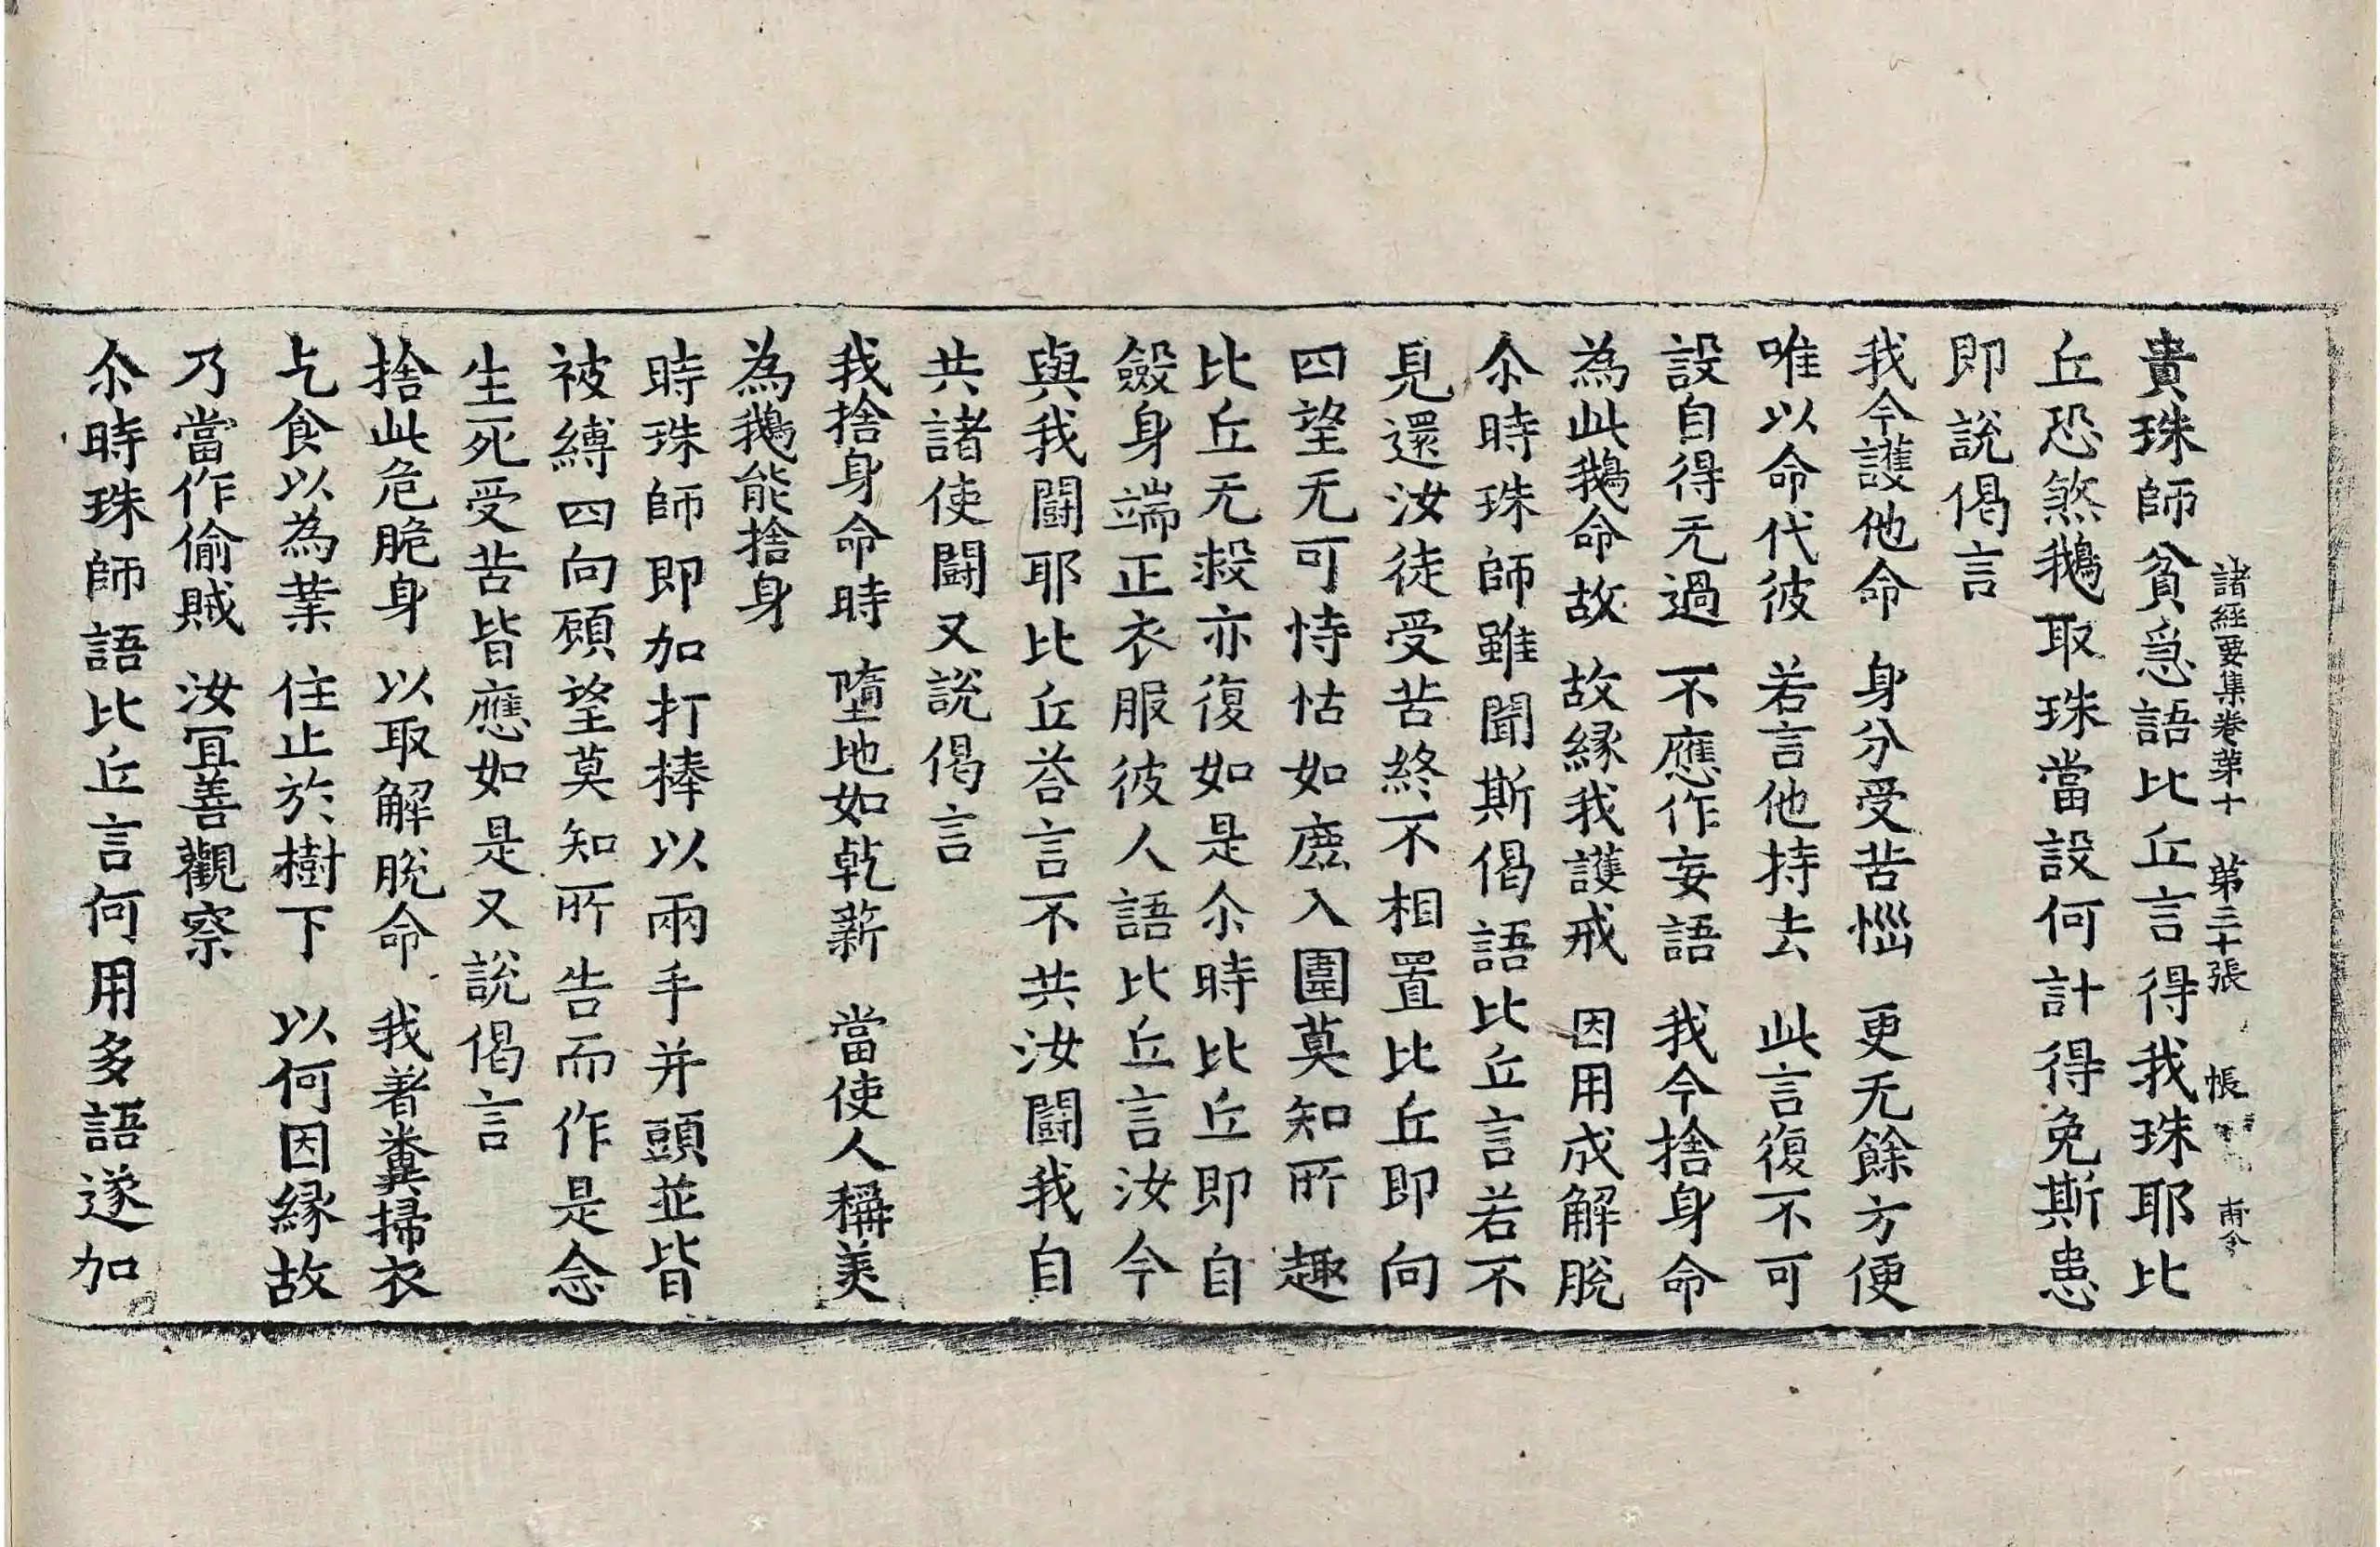 諸經要集卷苐十 苐三十張 帳
貴珠師貧急語比丘言得我珠耶比
丘恐煞鵝取珠當設何計得免斯患
即說偈言
我今護他命 身分受苦惱 更无餘方便
唯以命代彼 若言他持去 此言復不可
設自得无過 不應作妄語 我今捨身命
為此鵝命故 故縁我護戒 因用成解脫
尒時珠師雖聞斯偈語比丘言若不
見還汝徒受苦終不相置比丘即向
四望无可恃怙如鹿入圍莫知所趣
比丘无救亦復如是尒時比丘即自
斂身端正衣服彼人語比丘言汝今
與我鬪耶比丘荅言不共汝鬪我自
共諸使鬪又說偈言
我捨身命時 墮地如乾薪 當使人稱美
為鵝能捨身
時珠師即加打捧以兩手并頭並皆
被縛四向顧望莫知所告而作是念
生死受苦皆應如是又說偈言
捨此危脆身 以取解脫命 我著糞掃衣
乞食以為業 住止於樹下 以何因縁故
乃當作偷賊 汝冝善觀察
尒時珠師語比丘言何用多語遂加